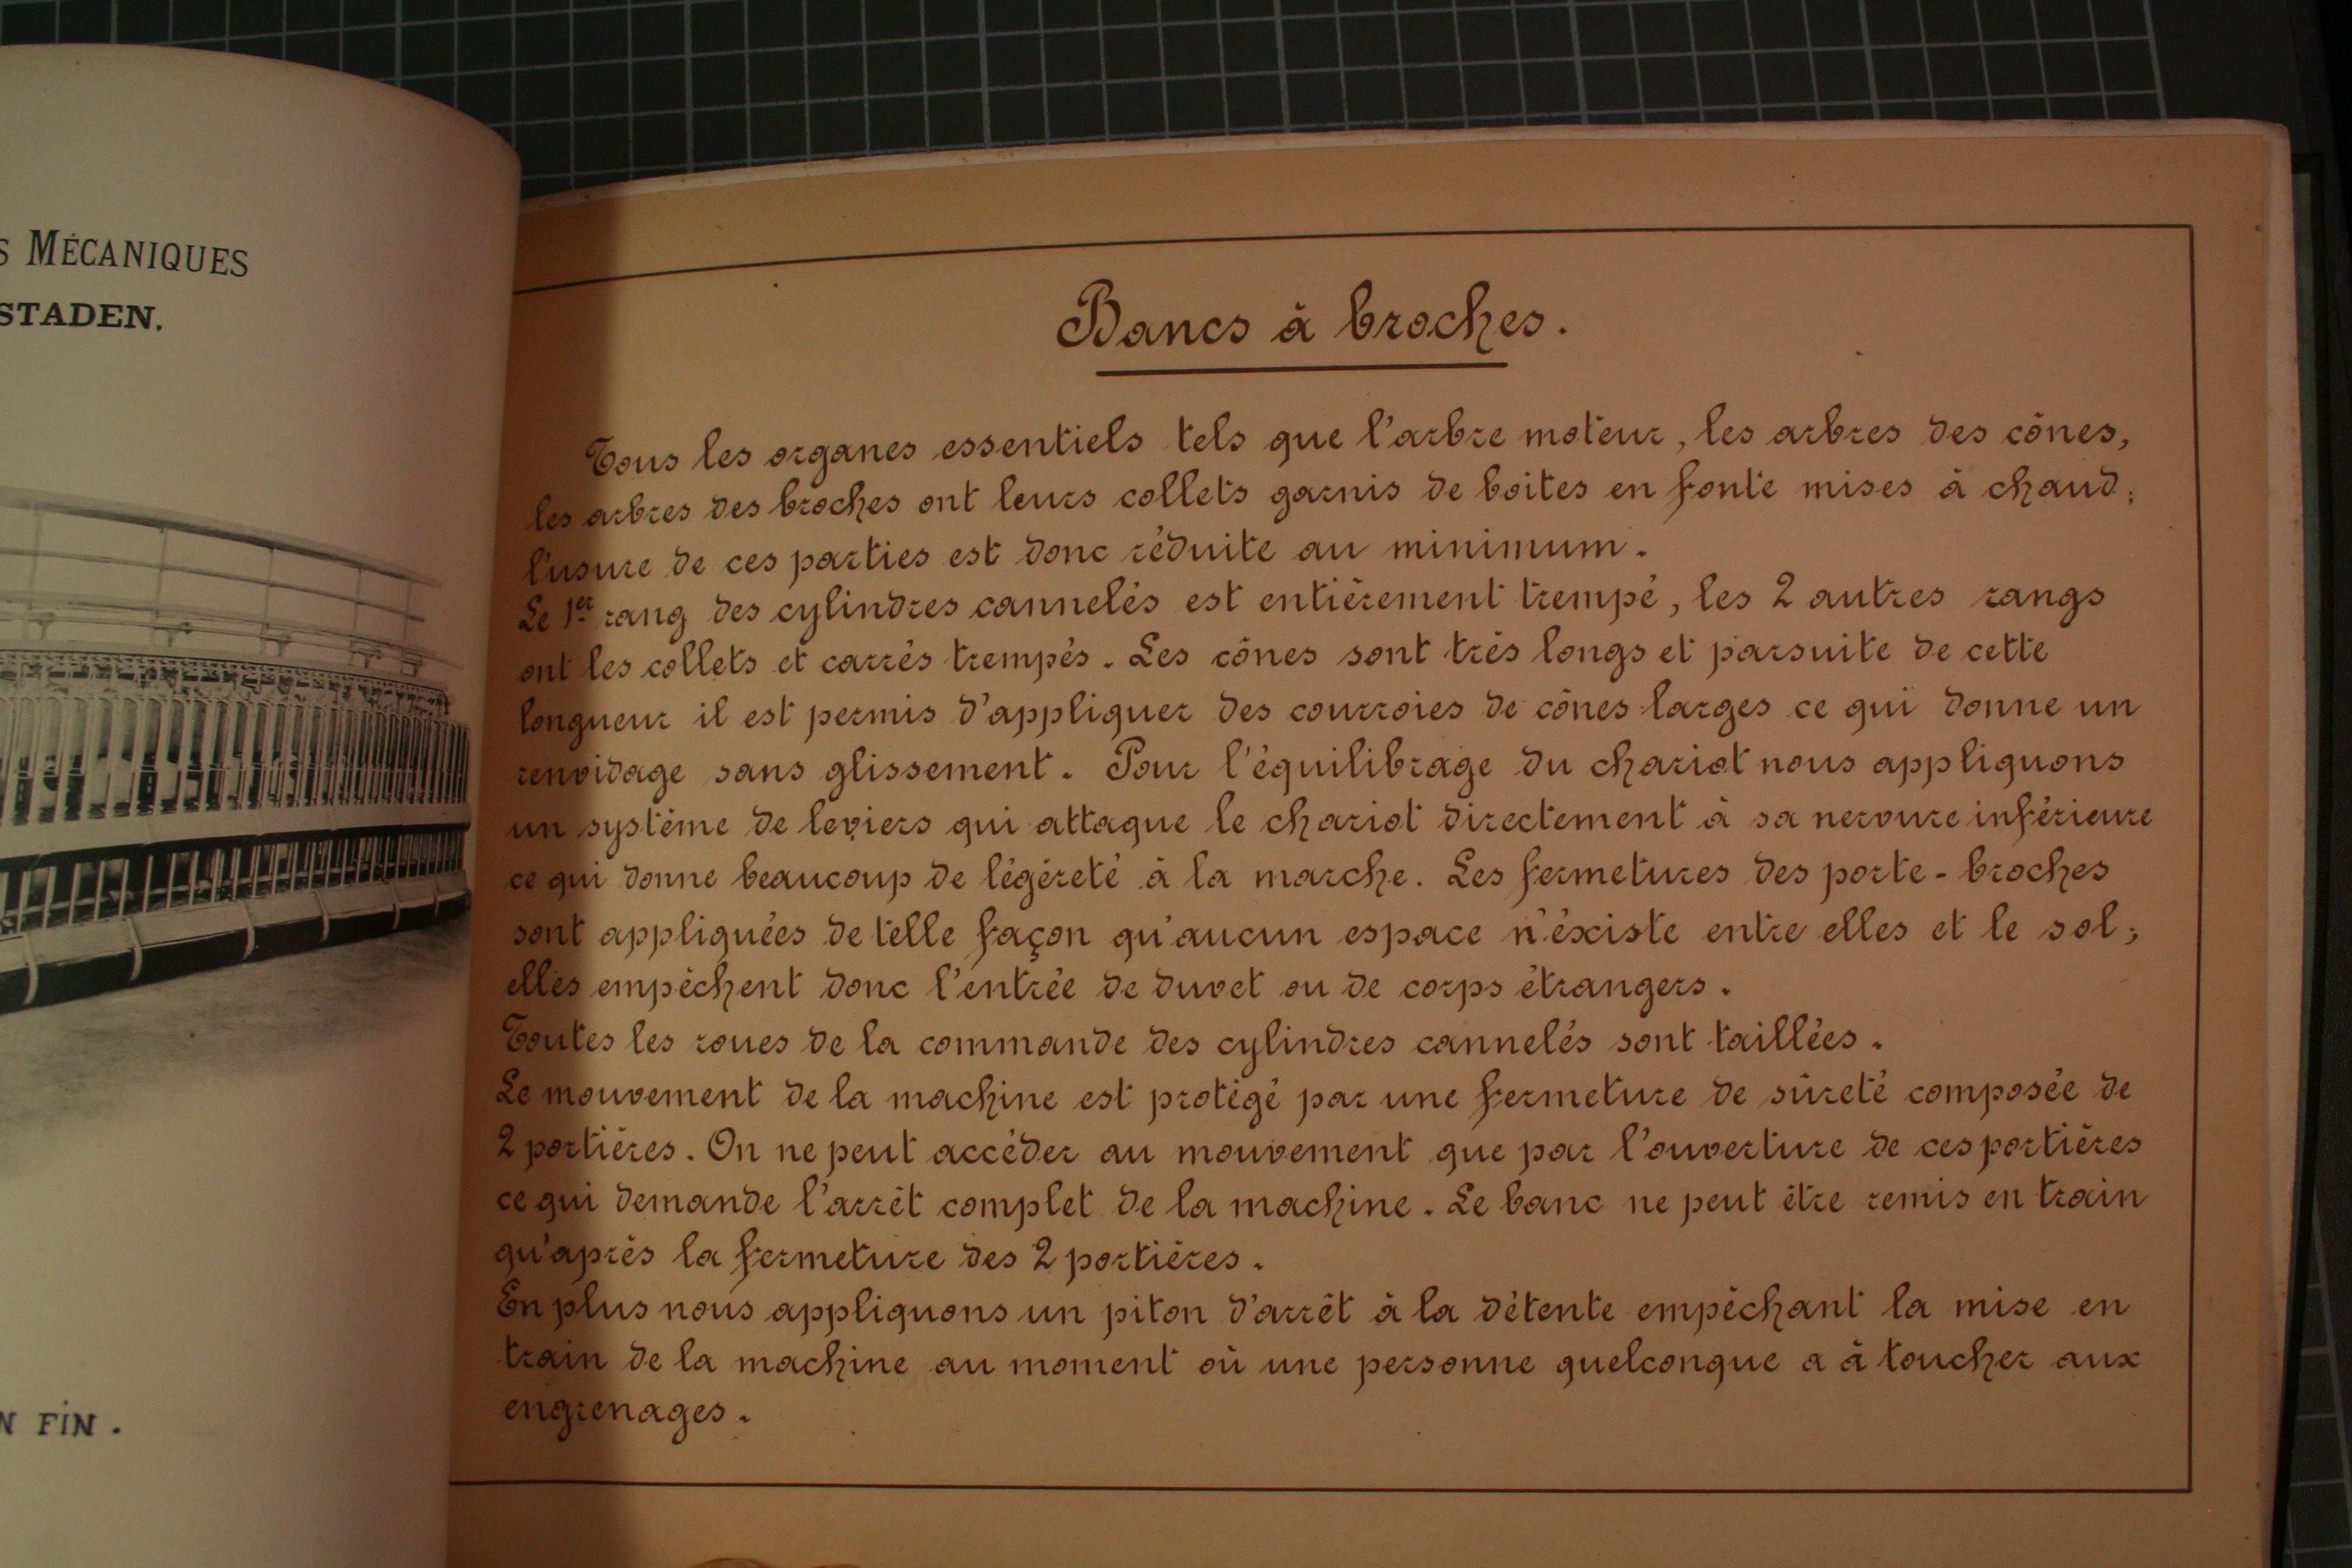 S MÉCANIQUES
STADEN.
N FIN.
Bancs à broches.
Tous les organes essentiels tels que l'arbre moteur, les arbres des cônes,
les arbres des broches ont leurs collets garnis de boites en fonte mises à chaud;
l'usure de ces parties est donc réduite au minimum.
Le 1er rang des cylindres cannelés est entièrement trempé, les 2 autres rangs
ont les collets et carrés trempés. Les cônes sont très longs et parsuite de cette
longueur il est permis d'appliquer des courroies de cônes larges ce qui donne un
renvidage sans glissement. Pour l'équilibrage du chariot nous appliquons
un système de leviers qui attaque le chariot directement à sa nervure inférieure
ce qui donne beaucoup de légèreté à la marche. Les fermetures des porte-broches
sont appliquées de telle façon qu'aucun espace n'éxiste entre elles et le sol;
elles empêchent donc l'entrée de duvet ou de corps étrangers.
Toutes les roues de la commande des cylindres cannelés sont taillées.
Le mouvement de la machine est protégé par une fermeture de sûreté composée de
2 portières. On ne peut accéder au mouvement que par l'ouverture de ces portières
ce qui demande l'arrêt complet de la machine. Le banc ne peut être remis en train
qu'après la fermeture des 2 portières.
En plus nous appliquons un piton d'arrêt à la détente empêchant la mise en
train de la machine au moment où une personne quelconque a à toucher aux
engrenages.